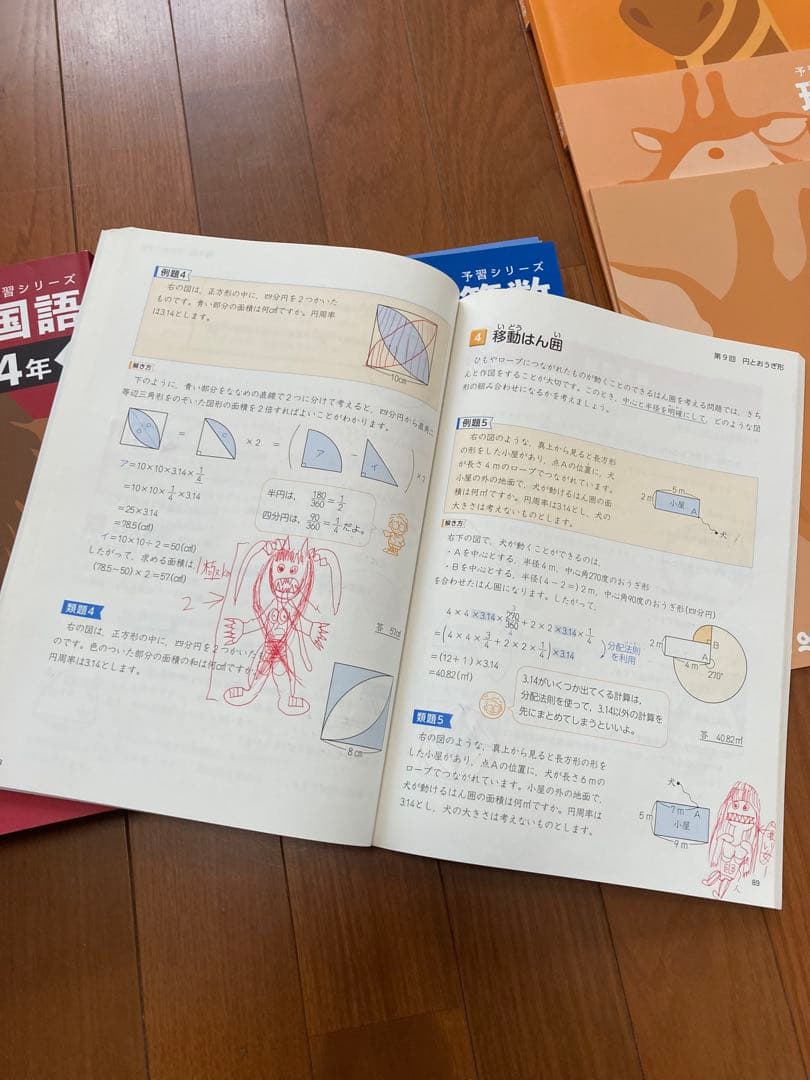 予習
習シリーズ
国語
4年
予習シリーズ
算数
例題4
右の図は、正方形の中に、四分円を2つかいた
ものです。青い部分の面積は何c㎡ですか。円周率
は3.14とします。
10cm
解き方
下のように、青い部分をななめの直線で2つに分けて考えると、四分円から直角二
等辺三角形をのぞいた図形の面積を2倍すればよいことがわかります。
= ×2 = ( ア − イ ) ×2
ア=10×10×3.14×1/4
=10×10×1/4×3.14
=25×3.14
=78.5(c㎡)
イ=10×10÷2=50(c㎡)
したがって、求める面積は、
(78.5−50)×2=57(c㎡)
半円は、180/360=1/2
四分円は、90/360=1/4だよ。
2
答 57c㎡
類題4
右の図は、正方形の中に、四分円を2つかいたも
のです。色のついた部分の面積の和は何c㎡ですか。
円周率は3.14とします。
8cm
第9回 円とおうぎ形
4 移動はん囲
いどう い
ひもやロープにつながれたものが動くことのできるはん囲を考える問題では、きち
んと作図をすることが大切です。このとき、中心と半径を明確にして、どのような図
形の組み合わせになるかを考えましょう。
例題5
右の図のような、真上から見ると長方形
の形をした小屋があり、点Aの位置に、犬
が長さ4mのロープでつながれています。
小屋の外の地面で、犬が動けるはん囲の面
積は何㎡ですか。円周率は3.14とし、犬の
大きさは考えないものとします。
5m
2m
小屋
A
犬
解き方
右下の図で、犬が動くことができるのは、
・Aを中心とする、半径4m、中心角270度のおうぎ形
・Bを中心とする、半径(4−2=)2m、中心角90度のおうぎ形(四分円)
を合わせたはん囲になります。したがって、
4×4×3.14×270/360+2×2×3.14×1/4
=(4×4×3/4+2×2×1/4)×3.14
=(12+1)×3.14
=40.82(㎡)
分配法則
を利用
2m
B
A
4m
270°
3.14がいくつか出てくる計算は、
分配法則を使って、3.14以外の計算を
先にまとめてしまうといいよ。
答 40.82㎡
類題5
右の図のような、真上から見ると長方形の形を
した小屋があり、点Aの位置に、犬が長さ6mの
ロープでつながれています。小屋の外の地面で、
犬が動けるはん囲の面積は何㎡ですか。円周率は
3.14とし、犬の大きさは考えないものとします。
犬
7m
A
5m
小屋
9m
89